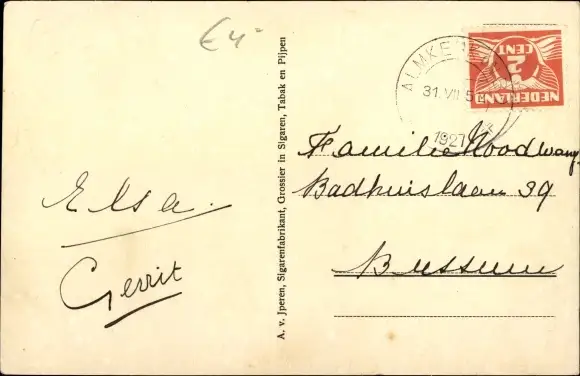 € 4-
ALMKERK
31. VII 5
1927
2
CENT
NEDERLAND
Familie Noodwang
Badhuislaan 39
Bussum
Elsa.
Gerrit
A. v. Jperen, Sigarenfabrikant, Grossier in Sigaren, Tabak en Pijpen